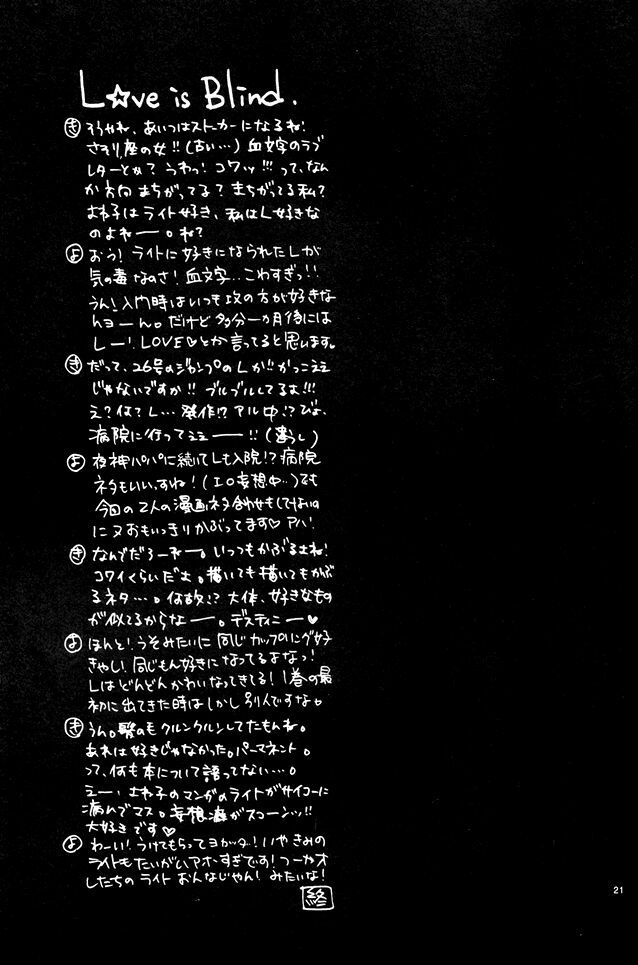 L☆ve is Blind.
き そうかね、あいつはストーカーになるね!
さそり座の女!!(古い…)血文字のラブ
レターとか? うわっ! コワッ!!! って、なん
か方向まちがってる? まちがってる私?
よね子はライト好き、私はL好きな
のよねー。ね?
よ おう! ライトに好きになられたLが
気の毒なのさ! 血文字…こわすぎっ!!
うん! 入門時はいつも攻の方が好きな
んヨーん。だけど多分一か月後には
Lー! LOVE♡とか言ってると思います。
き だって、26号のジャンプのLが!! かっこええ
じゃないですか!! ブルブルしてるよ!!!
え? 何? L… 発作!? アル中!? びよ、
病院に行ってええーー!!
よ 夜神パパに続いてLも入院!? 病院
ネタもいいすね! (エロ妄想中…)でも
今回の2人の漫画ネタ合わせもしてないの
にヌおもいっきりかぶってます♡ アハ!
き なんでだろーねー。いっつもかぶるよね!
コワイくらいだよ。描いても描いてもかぶ
るネタ…。何故!? 大体、好きなもの
が似てるからなーー。デスティニー♥
よ ほんと! うそみたいに同じカップリング好
きやし! 同じもん好きになってるよなっ!
Lはどんどんかわいなってきてる! 1巻の最
初に出てきた時はしかし別人ですな。
き うん。髪のモクルンクルンしてたもんね。
あれは好きじゃなかった。パーマネント。
って、何も本について語ってない…。
えー、よね子のマンガのライトがサイコーに
病んでマス。妄想癖がスコーンッ!!
大好きです♡
よ わーい! うけてもらってヨカッタ! いやきみの
ライトもたいがいアホすぎです! つーかオレ
したちのライト おんなじゃん! みたいな!
終
21